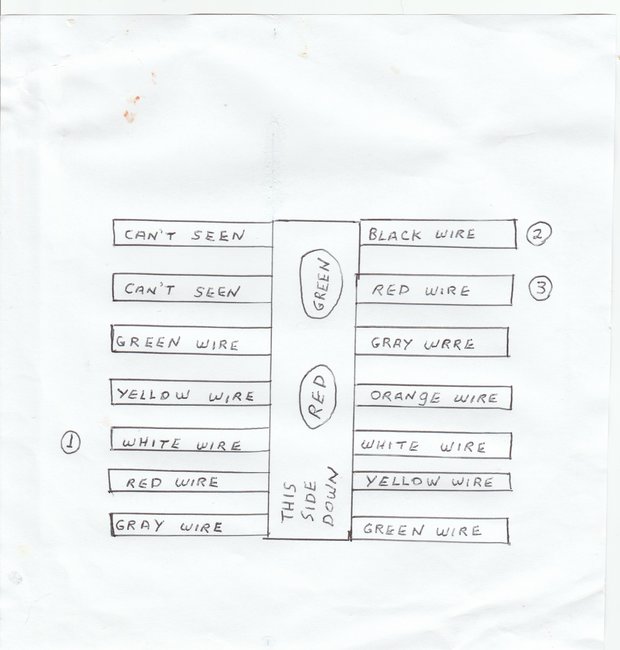 CAN'T SEEN
BLACK WIRE
2
CAN'T SEEN
RED WIRE
3
GREEN
GREEN WIRE
GRAY WRRE
YELLOW WIRE
RED
ORANGE WIRE
1
WHITE WIRE
WHITE WIRE
RED WIRE
YELLOW WIRE
GRAY WIRE
GREEN WIRE
THIS
SIDE
DOWN